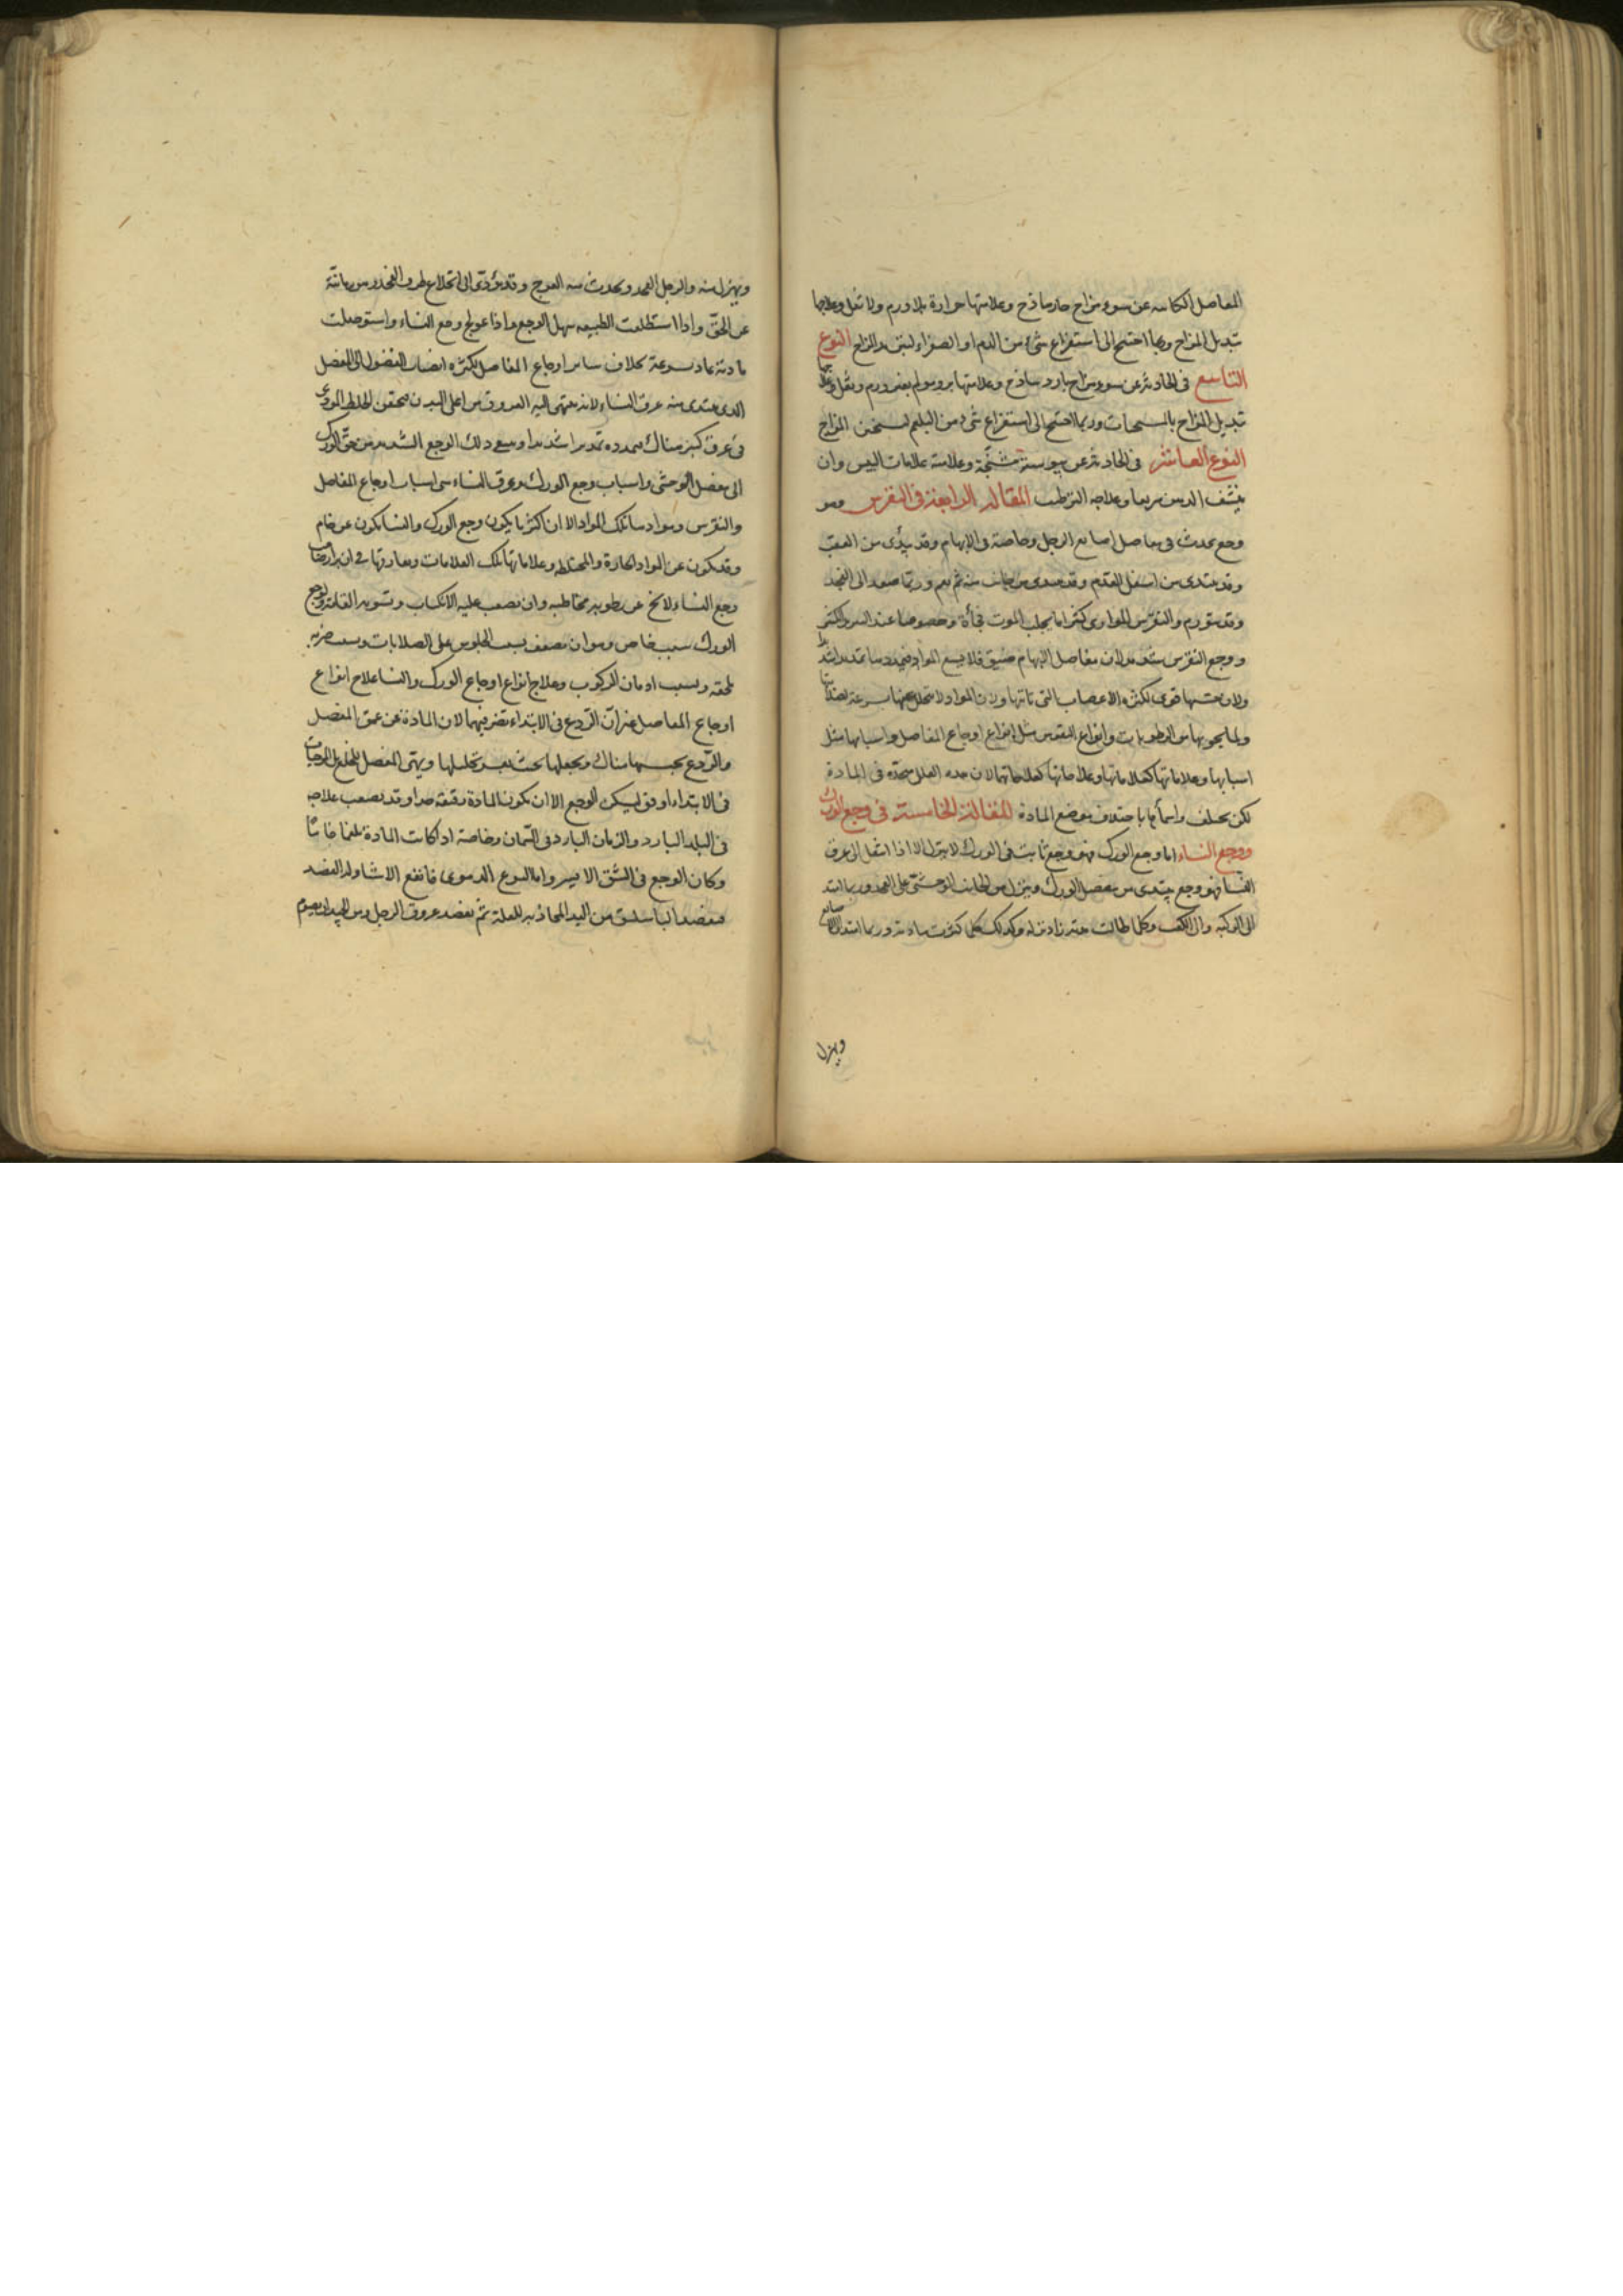 المفاصل الكاينه عن سوء مزاج حار ساذج وعلامتها حرارة بلا ورم ولا ثقل وعلاجها
تبديل المزاج وربما احتيج الى استفراغ شىء من الدم او الصفراء ليتبرد المزاج النوع
التاسع فى الحادثة عن سوء مزاج بارد ساذج وعلامتها برد ولم بغير ورم وثقل وعلاجها
تبديل المزاج بالمسخنات وربما احتيج الى استفراغ شىء من البلغم ليسخن المزاج
النوع العاشر فى الحادثة عن يبوسة مشنّجة وعلامته علامات اليبس وان
ينشف الدهن سريعا وعلاجه الترطيب المقالة الرابعة فى النقرس وهو
وجع يحدث فى مفاصل اصابع الرجل وخاصة فى الابهام وقد يبتدى من العقب
وقد يبتدى من اسفل القدم وقد يبتدى من جانب منه ثم يعم وربما صعد الى الفخذ
وقد يتورم والنقرس المواوى كثيرا ما يجلب الموت فجأة وخصوصا عند البرد الكثير
ووجع النقرس شديد لان مفاصل الابهام ضيق فلا يسع المواد فيمددها تمديدا شديدا
ولان حسها قوى لكثرة الاعصاب التى تاتيها ولان المواد لا تتحلل عنها بسرعة لصلابتها
ولما يحويها من الرطوبات وانواع النقرس مثل انواع اوجاع المفاصل واسبابها مثل
اسبابها وعلاماتها كعلاماتها وعلاجاتها كعلاجاتها لان هذه العلل متحدة فى المادة
لكن يختلف واسماؤها باختلاف موضع المادة المقالة الخامسة فى وجع الورك
ووجع النساء اما وجع الورك فهو وجع ثابت فى الورك لا ينزل الا اذا انتقل الى عرق
النسا فهو وجع يبتدى من مفصل الورك وينزل من الجانب الوحشى على الفخذ وربما امتد
الى الركبه والى الكعب وكلما طالت مدته زاد نزوله وكذلك كلما كثرت مادته وربما امتد الى الاصابع
ويهزل
ويهزل منه والرجل الفخذ ويحدث منه العرج وقد يؤدى الى انخلاع طرف الفخذ من رمانته
عن الحقّ واذا استطلقت الطبيعه سهل الوجع واذا عولج وجع النساء واستوصلت
مادته عاد بسرعة بخلاف ساير اوجاع المفاصل لكثره انصباب الفضول الى المفصل
الذى يبتدى منه عرق النساء لانه ينتهى اليه العروق من اعلى البدن فيحتقن الخلط الموذى
فى عرق كبير هناك فيمدده تمديدا شديدا ويتبع ذلك الوجع الشديد من حقّ الورك
الى مفصل الوحشى واسباب وجع الورك وعرق النساء هى اسباب اوجاع المفاصل
والنقرس وموادها تلك المواد الا ان اكثر ما يكون وجع الورك والنسا يكون عن خام
وقد يكون عن المواد الحارة والمختلطه وعلاماتها تلك العلامات
وجع النساء لا يخ عن رطوبة مخاطيه وان يصعب عليه الانكباب وتسوية القامة ولوجع
الورك سبب خاص وهو ان يضعف بسبب الجلوس على الصلابات وبسبب ضربه
تلحقه وبسبب ادمان الركوب وعلاج انواع اوجاع الورك والنسا علاج انواع
اوجاع المفاصل غير انّ الردع فى الابتداء يضر فيهما لان المادة فى عمق المفصل
والردع يحبسها هناك ويجعلها بحيث يعسر تحليلها ويهيّى المفصل للخلع بل المرخيات
فى الابتداء اوفق ليسكن الوجع الا ان يكون المادة رقيقة جدا وقد يصعب علاجه
فى البلد البارد والزمان البارد فى السمان وخاصة اذا كانت المادة بلغما خاما
وكان الوجع فى الشق الايسر واما النوع الدموى فانفع الاشياء له الفصد
فيفصد الباسليق من اليد المحاذية للعلة ثم يفصد عروق الرجل ومن الجيد ان يصوم